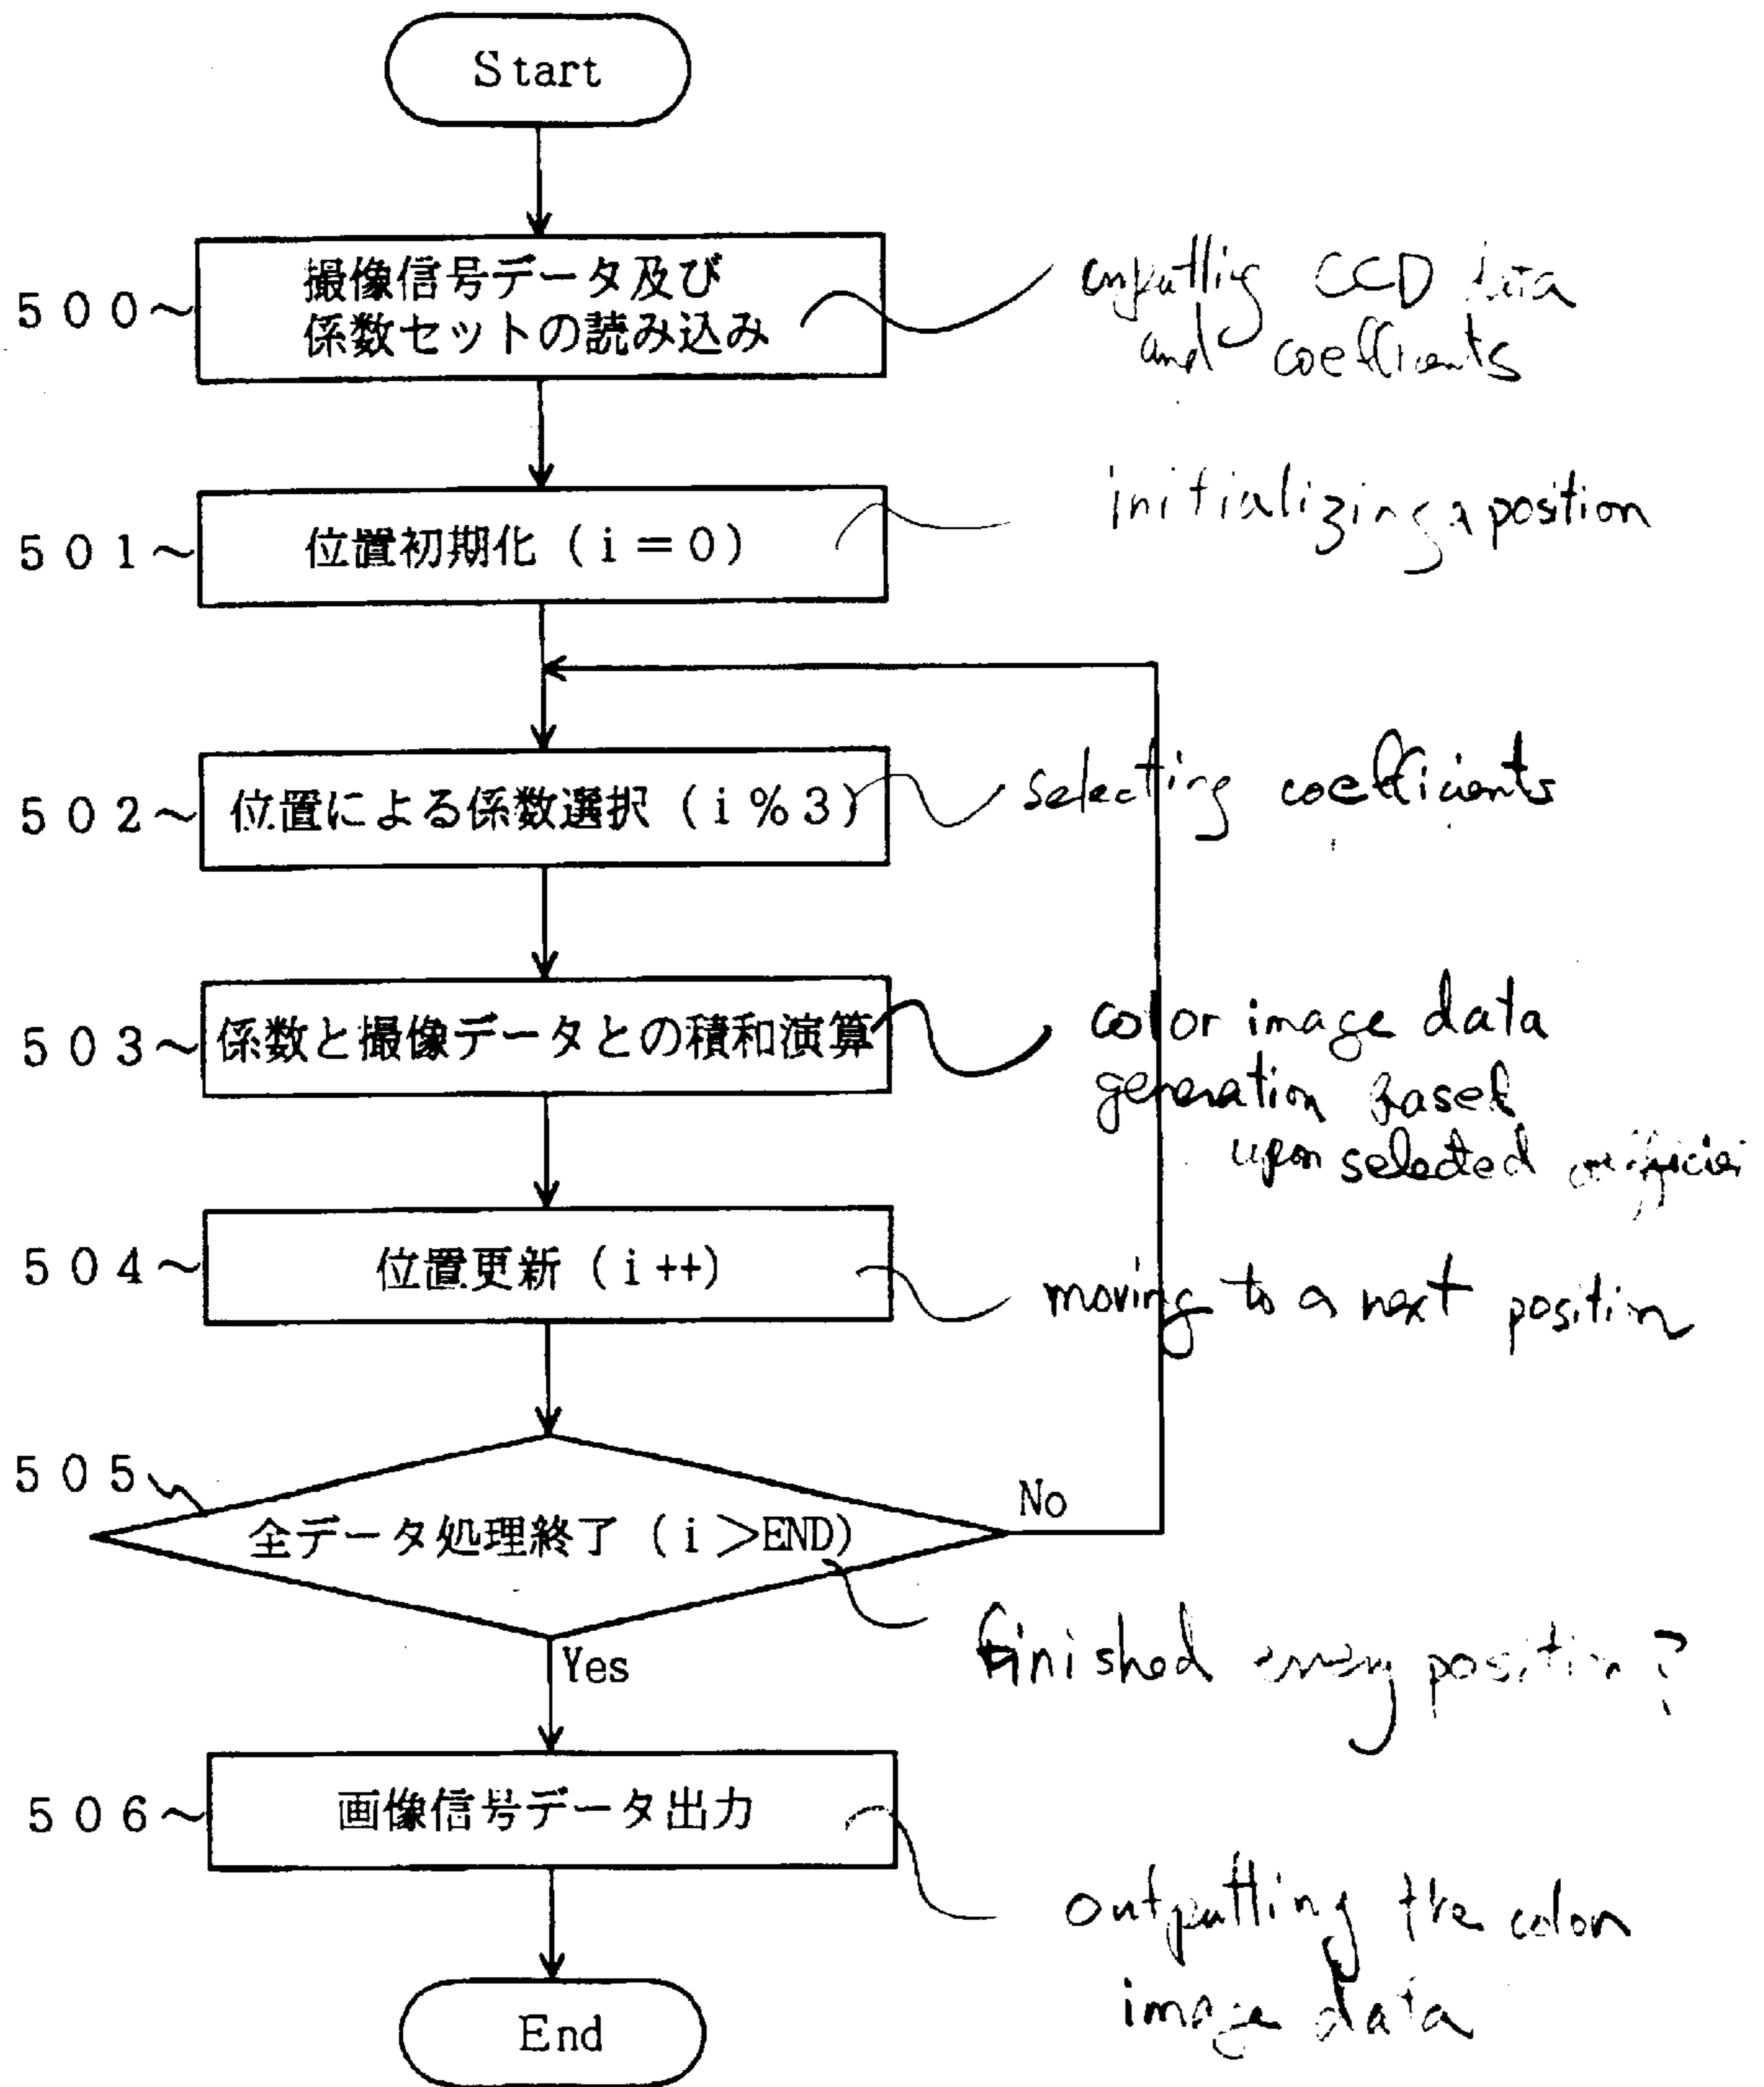 Start
500~
撮像信号データ及び
係数セットの読み込み
CCD data
and coefficients
501~
位置初期化 (i=0)
initializing a position
502~
位置による係数選択 (i%3)
selecting coefficients
503~
係数と撮像データとの積和演算
color image data
generation based
upon selected
504~
位置更新 (i++)
moving to a next position
505
全データ処理終了 (i>END)
No
finished every position?
Yes
506~
画像信号データ出力
outputting the color
image data
End